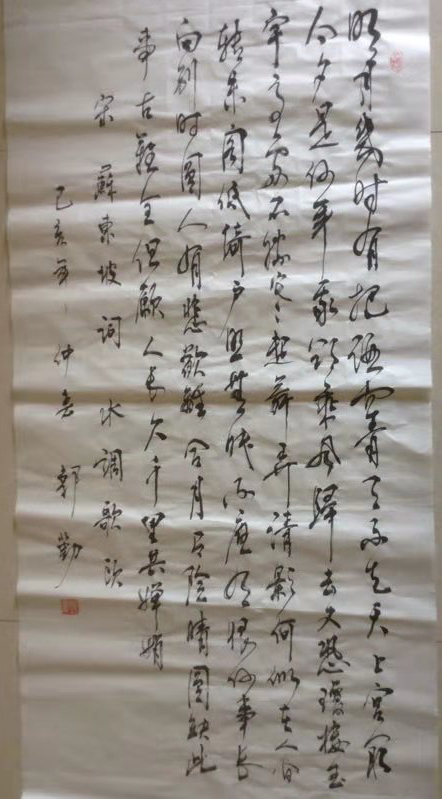 明月幾时有把酒问青天不知天上宫阙
今夕是何年我欲乘风归去又恐瓊楼玉
宇高處不勝寒起舞弄清影何似在人间
转朱阁低绮户照無眠不應有恨何事长
向别时圆人有悲歡離合月有陰晴圆缺此
事古難全但願人长久千里共嬋娟
宋蘇東坡詞水調歌头
己亥年仲春郭勤